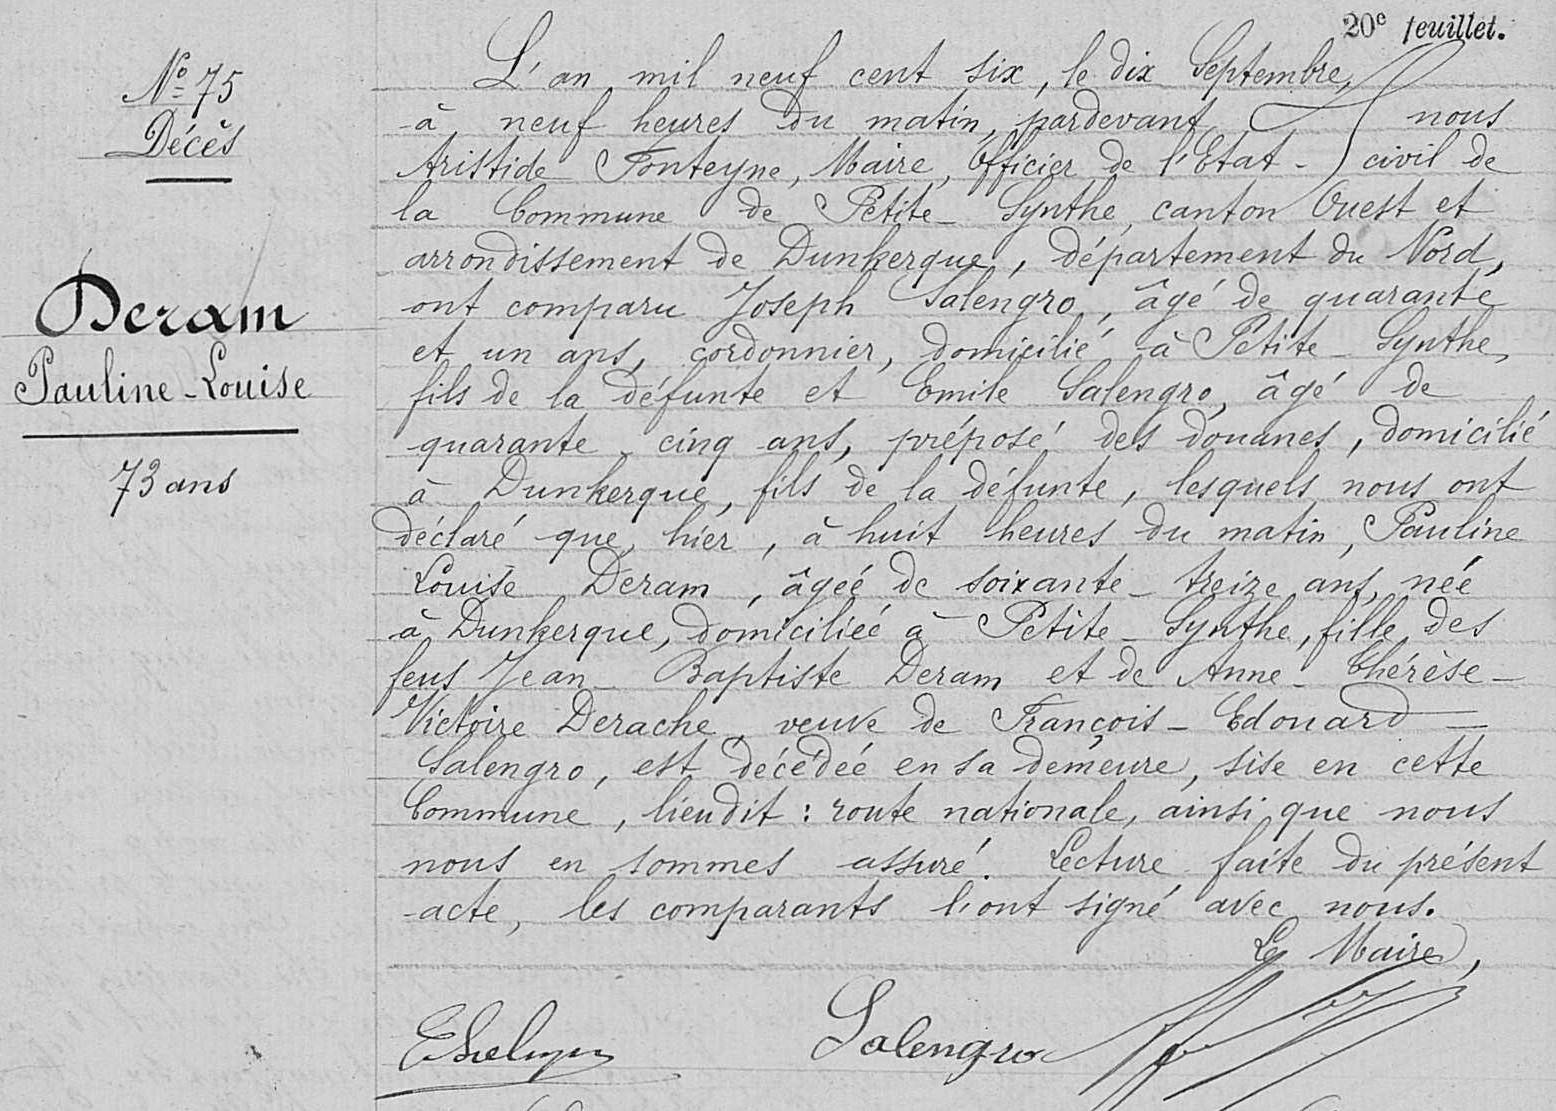 20e feuillet.
No 75
Décès
Deram
Pauline-Louise
73 ans
L'an mil neuf cent six, le dix Septembre,
à neuf heures du matin, pardevant nous
Aristide Fonteyne, Maire, Officier de l'Etat-civil de
la Commune de Petite-Synthe, canton Ouest et
arrondissement de Dunkerque, département du Nord,
ont comparu Joseph Salengro, âgé de quarante
et un ans, cordonnier, domicilié à Petite-Synthe,
fils de la défunte et Emile Salengro, âgé de
quarante-cinq ans, préposé des douanes, domicilié
à Dunkerque, fils de la défunte, lesquels nous ont
déclaré que hier, à huit heures du matin, Pauline
Louise Deram, âgée de soixante-treize ans, née
à Dunkerque, domiciliée à Petite-Synthe, fille des
feus Jean-Baptiste Deram et de Anne-Thérèse-
Victoire Derache, veuve de François-Edouard
Salengro, est décédée en sa demeure, sise en cette
Commune, lieudit : route nationale, ainsi que nous
nous en sommes assuré. Lecture faite du présent
acte, les comparants l'ont signé avec nous.
Le Maire,
Salengro